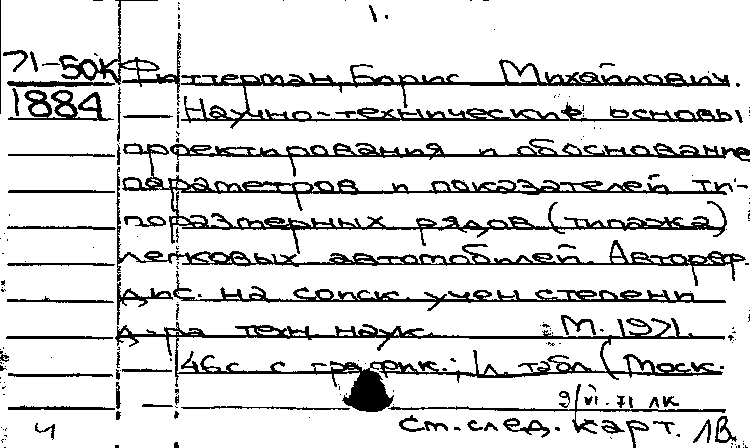 1.
71-50К Фиттерман, Борис Михайлович.
1884 Научно-технические основы
проектирования и обоснование
параметров и показателей ти-
поразмерных рядов (типажа)
легковых автомобилей. Автореф.
дис. на соиск. учен степени
д-ра техн. наук. М. 1971.
46 с с график.; 1 л. табл (Моск.
9/VI-71 ЛК
См. след. карт. 1В